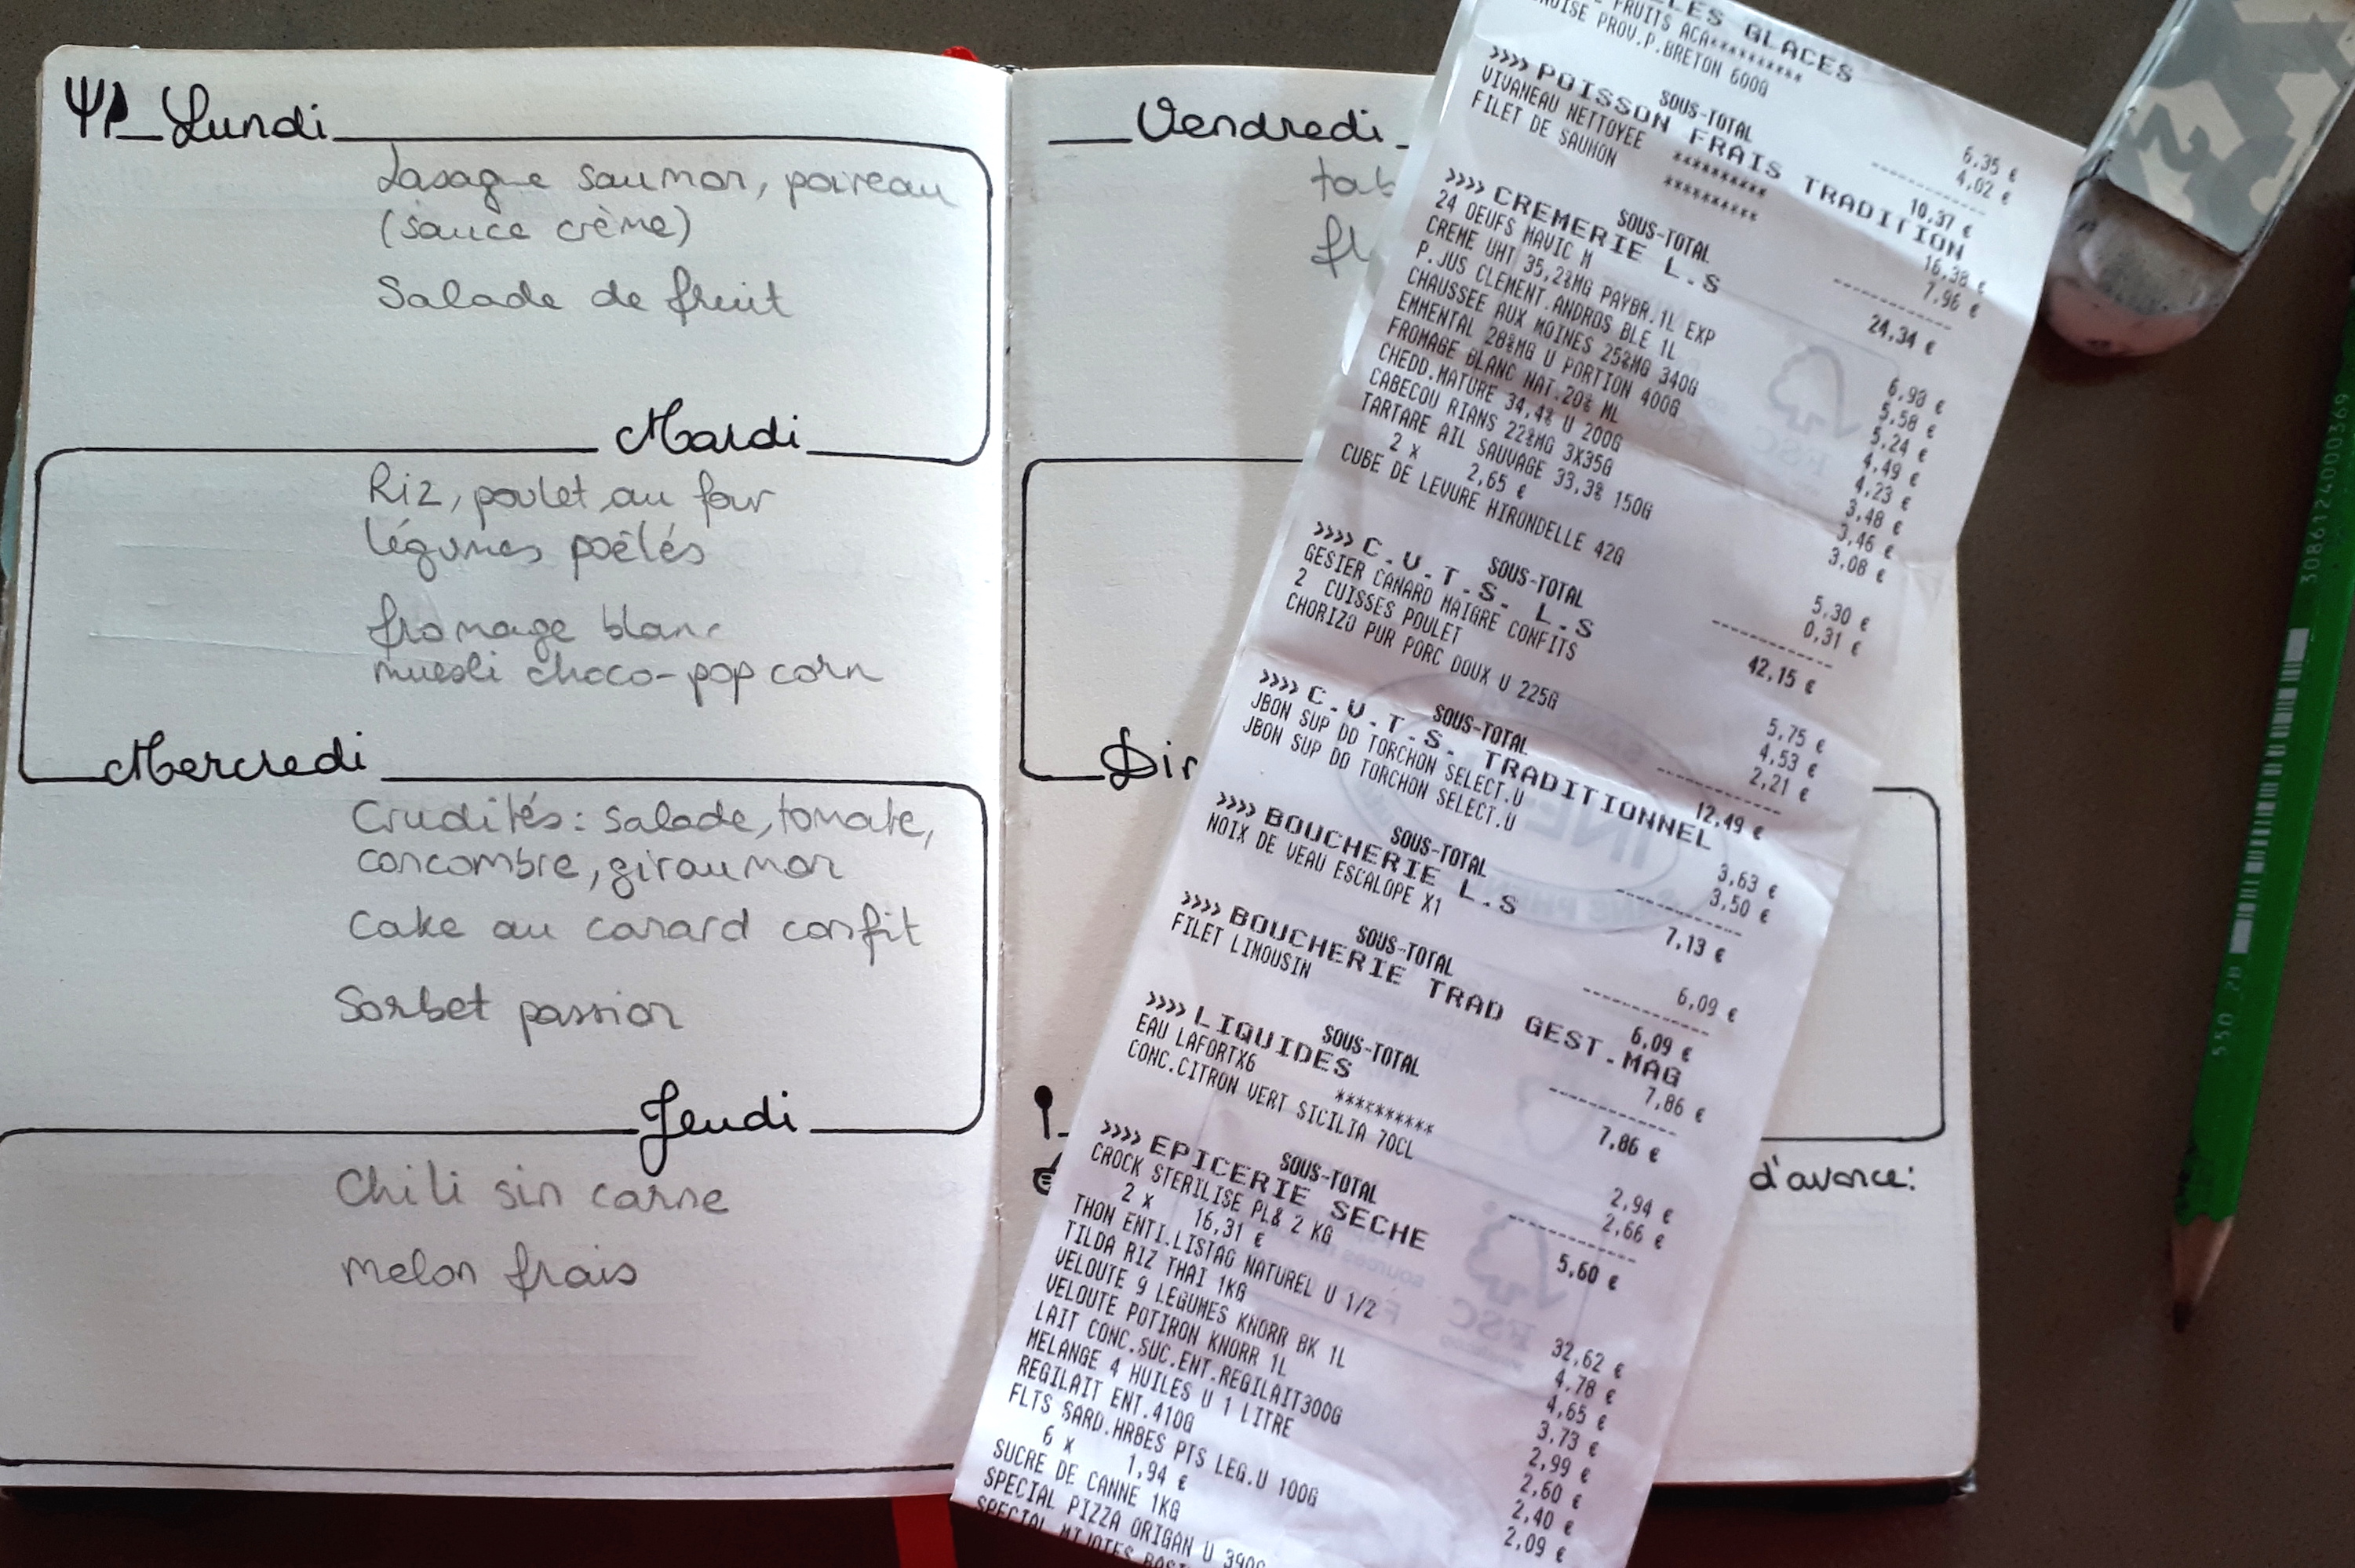 Lundi
Lasagne saumon, poireau
(sauce crème)
Salade de fruit
Mardi
Riz, poulet au four
légumes poêlés
fromage blanc
muesli choco-pop corn
Mercredi
Crudités: salade, tomate,
concombre, giraumon
Cake au canard confit
Sorbet passion
Jeudi
Chili sin carne
melon frais
Vendredi
tab
fl
Dir
d'avance:
GLACES
FRUITS ACA**********
PROV.P.BRETON 600G
6,35 €
4,02 €
SOUS-TOTAL 10,37 €
>>>> POISSON FRAIS TRADITION
VIVANEAU NETTOYEE ********* 16,38 €
FILET DE SAUMON ********* 7,96 €
SOUS-TOTAL 24,34 €
>>>> CREMERIE L.S
24 OEUFS MAVIC M 6,98 €
CREME UHT 35,2%MG PAYBR.1L EXP 5,58 €
P.JUS CLEMENT.ANDROS BLE 1L 5,24 €
CHAUSSEE AUX MOINES 25%MG 340G 4,49 €
EMMENTAL 28%MG U PORTION 400G 4,23 €
FROMAGE BLANC NAT.20% ML 3,48 €
CHEDD.MATURE 34,4% U 200G 3,46 €
CABECOU RIANS 22%MG 3X35G 3,08 €
TARTARE AIL SAUVAGE 33,3% 150G
2 x 2,65 € 5,30 €
CUBE DE LEVURE HIRONDELLE 42G 0,31 €
SOUS-TOTAL 42,15 €
>>>> C.V.T.S. L.S
GESIER CANARD MAIGRE CONFITS 5,75 €
2 CUISSES POULET 4,53 €
CHORIZO PUR PORC DOUX U 225G 2,21 €
SOUS-TOTAL 12,49 €
>>>> C.V.T.S. TRADITIONNEL
JBON SUP DD TORCHON SELECT.U 3,63 €
JBON SUP DD TORCHON SELECT.U 3,50 €
SOUS-TOTAL 7,13 €
>>>> BOUCHERIE L.S
NOIX DE VEAU ESCALOPE X1 6,09 €
SOUS-TOTAL 6,09 €
>>>> BOUCHERIE TRAD GEST.MAG
FILET LIMOUSIN 7,86 €
SOUS-TOTAL 7,86 €
>>>> LIQUIDES
EAU LAFORTX6 ********** 2,94 €
CONC.CITRON VERT SICILIA 70CL 2,66 €
SOUS-TOTAL 5,60 €
>>>> EPICERIE SECHE
CROCK STERILISE PL& 2 KG
2 x 16,31 € 32,62 €
THON ENTI.LISTAO NATUREL U 1/2 4,78 €
TILDA RIZ THAI 1KG 4,65 €
VELOUTE 9 LEGUMES KNORR BK 1L 3,73 €
VELOUTE POTIRON KNORR 1L 2,99 €
LAIT CONC.SUC.ENT.REGILAIT300G 2,60 €
MELANGE 4 HUILES U 1 LITRE 2,40 €
REGILAIT ENT.410G 2,09 €
FLTS SARD.HRBES PTS LEG.U 100G
6 x 1,94 €
SUCRE DE CANNE 1KG
SPECIAL PIZZA ORIGAN U 390G
SPECIAL
3086124000369
550 2B